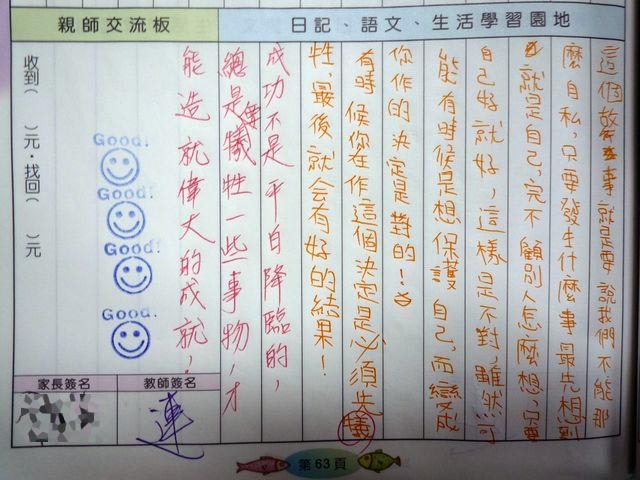 日記、語文、生活學習園地
這個故事就是要說我們不能那
麼自私,只要發生什麼事最先想到
就是自己,完不顧別人怎麼想,只要
自己好就好,這樣是不對,雖然可
能有時候是想保護自己,而變成
你作的決定是對的!
有時候你在作這個決定是必須先犧
牲,最後就会有好的結果!
成功不是平白降臨的,
總是要犧牲一些事物,才
能造就偉大的成就!
親師交流板
收到( )元.找回( )元
Good!
Good!
Good!
Good!
教師簽名
連
家長簽名
第63頁